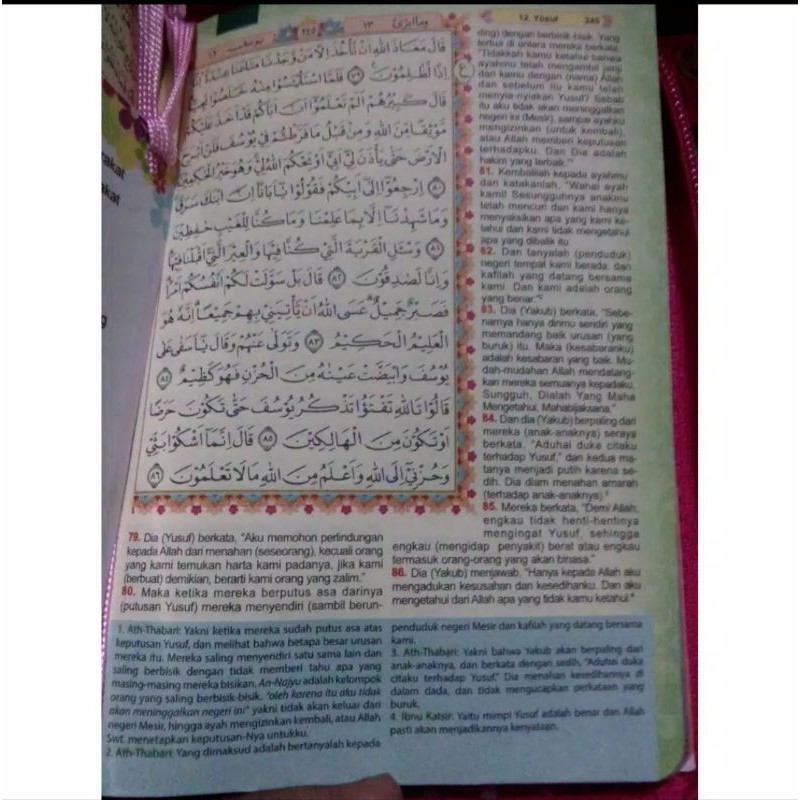 وما ابرئ ١٣
٢٤٥
يوسف ١٢
قَالَ مَعَاذَ اللّٰهِ اَنْ نَّأْخُذَ اِلَّا مَنْ وَّجَدْنَا مَتَاعَنَا عِنْدَهٗٓ اِنَّآ
اِذًا لَّظٰلِمُوْنَ ࣖ ٧٩ فَلَمَّا اسْتَا۟يْـَٔسُوْا مِنْهُ خَلَصُوْا نَجِيًّا
قَالَ كَبِيْرُهُمْ اَلَمْ تَعْلَمُوْٓا اَنَّ اَبَاكُمْ قَدْ اَخَذَ عَلَيْكُمْ
مَّوْثِقًا مِّنَ اللّٰهِ وَمِنْ قَبْلُ مَا فَرَّطْتُّمْ فِيْ يُوْسُفَ فَلَنْ اَبْرَحَ
الْاَرْضَ حَتّٰى يَأْذَنَ لِيْٓ اَبِيْٓ اَوْ يَحْكُمَ اللّٰهُ لِيْ وَهُوَ خَيْرُ الْحٰكِمِيْنَ
٨٠ اِرْجِعُوْٓا اِلٰٓى اَبِيْكُمْ فَقُوْلُوْا يٰٓاَبَانَآ اِنَّ ابْنَكَ سَرَقَ
وَمَا شَهِدْنَآ اِلَّا بِمَا عَلِمْنَا وَمَا كُنَّا لِلْغَيْبِ حٰفِظِيْنَ
٨١ وَسْـَٔلِ الْقَرْيَةَ الَّتِيْ كُنَّا فِيْهَا وَالْعِيْرَ الَّتِيْٓ اَقْبَلْنَا فِيْهَا
وَاِنَّا لَصٰدِقُوْنَ ٨٢ قَالَ بَلْ سَوَّلَتْ لَكُمْ اَنْفُسُكُمْ اَمْرًا
فَصَبْرٌ جَمِيْلٌ عَسَى اللّٰهُ اَنْ يَّأْتِيَنِيْ بِهِمْ جَمِيْعًا اِنَّهٗ هُوَ
الْعَلِيْمُ الْحَكِيْمُ ٨٣ وَتَوَلّٰى عَنْهُمْ وَقَالَ يٰٓاَسَفٰى عَلٰى
يُوْسُفَ وَابْيَضَّتْ عَيْنٰهُ مِنَ الْحُزْنِ فَهُوَ كَظِيْمٌ ٨٤
قَالُوْا تَاللّٰهِ تَفْتَؤُا تَذْكُرُ يُوْسُفَ حَتّٰى تَكُوْنَ حَرَضًا
اَوْ تَكُوْنَ مِنَ الْهَالِكِيْنَ ٨٥ قَالَ اِنَّمَآ اَشْكُوْا بَثِّيْ
وَحُزْنِيْٓ اِلَى اللّٰهِ وَاَعْلَمُ مِنَ اللّٰهِ مَا لَا تَعْلَمُوْنَ ٨٦
79. Dia (Yusuf) berkata, "Aku memohon perlindungan
kepada Allah dari menahan (seseorang), kecuali orang
yang kami temukan harta kami padanya, jika kami
(berbuat) demikian, berarti kami orang yang zalim."
80. Maka ketika mereka berputus asa darinya
(putusan Yusuf) mereka menyendiri (sambil berun-
12. Yusuf 245
ding) dengan berbisik-bisik. Yang
tertua di antara mereka berkata,
"Tidakkah kamu ketahui bahwa
ayahmu telah mengambil janji
dari kamu dengan (nama) Allah
dan sebelum itu kamu telah
menyia-nyiakan Yusuf? Sebab
itu aku tidak akan meninggalkan
negeri ini (Mesir), sampai ayahku
mengizinkan (untuk kembali),
atau Allah memberi keputusan
terhadapku. Dan Dia adalah
hakim yang terbaik."
81. Kembalilah kepada ayahmu
dan katakanlah, "Wahai ayah
kami! Sesungguhnya anakmu
telah mencuri dan kami hanya
menyaksikan apa yang kami ke-
tahui dan kami tidak mengetahui
apa yang dibalik itu.
82. Dan tanyalah (penduduk)
negeri tempat kami berada, dan
kafilah yang datang bersama
kami. Dan kami adalah orang
yang benar."²
83. Dia (Yakub) berkata, "Sebe-
narnya hanya dirimu sendiri yang
memandang baik urusan (yang
buruk) itu. Maka (kesabaranku)
adalah kesabaran yang baik. Mu-
dah-mudahan Allah mendatang-
kan mereka semuanya kepadaku.
Sungguh, Dialah Yang Maha
Mengetahui, Mahabijaksana."
84. Dan dia (Yakub) berpaling dari
mereka (anak-anaknya) seraya
berkata, "Aduhai duka citaku
terhadap Yusuf," dan kedua ma-
tanya menjadi putih karena se-
dih. Dia diam menahan amarah
(terhadap anak-anaknya).³
85. Mereka berkata, "Demi Allah,
engkau tidak henti-hentinya
mengingat Yusuf, sehingga
engkau (mengidap penyakit) berat atau engkau
termasuk orang-orang yang akan binasa."
86. Dia (Yakub) menjawab, "Hanya kepada Allah aku
mengadukan kesusahan dan kesedihanku. Dan aku
mengetahui dari Allah apa yang tidak kamu ketahui.⁴
1. Ath-Thabari: Yakni ketika mereka sudah putus asa atas
keputusan Yusuf, dan melihat bahwa betapa besar urusan
mereka itu. Mereka saling menyendiri satu sama lain dan
saling berbisik dengan tidak memberi tahu apa yang
masing-masing mereka bisikan. An-Najyu adalah kelompok
orang yang saling berbisik-bisik. "oleh karena itu aku tidak
akan meninggalkan negeri ini" yakni tidak akan keluar dari
negeri Mesir, hingga ayah mengizinkan kembali, atau Allah
Swt. menetapkan keputusan-Nya untukku.
2. Ath-Thabari: Yang dimaksud adalah bertanyalah kepada
penduduk negeri Mesir dan kafilah yang datang bersama
kami.
3. Ath-Thabari: Yakni bahwa Yakub akan berpaling dari
anak-anaknya, dan berkata dengan sedih, "Aduhai duka
citaku terhadap Yusuf." Dia menahan kesedihannya di
dalam dada, dan tidak mengucapkan perkataan yang
buruk.
4. Ibnu Katsir: Yaitu mimpi Yusuf adalah benar dan Allah
pasti akan menjadikannya kenyataan.